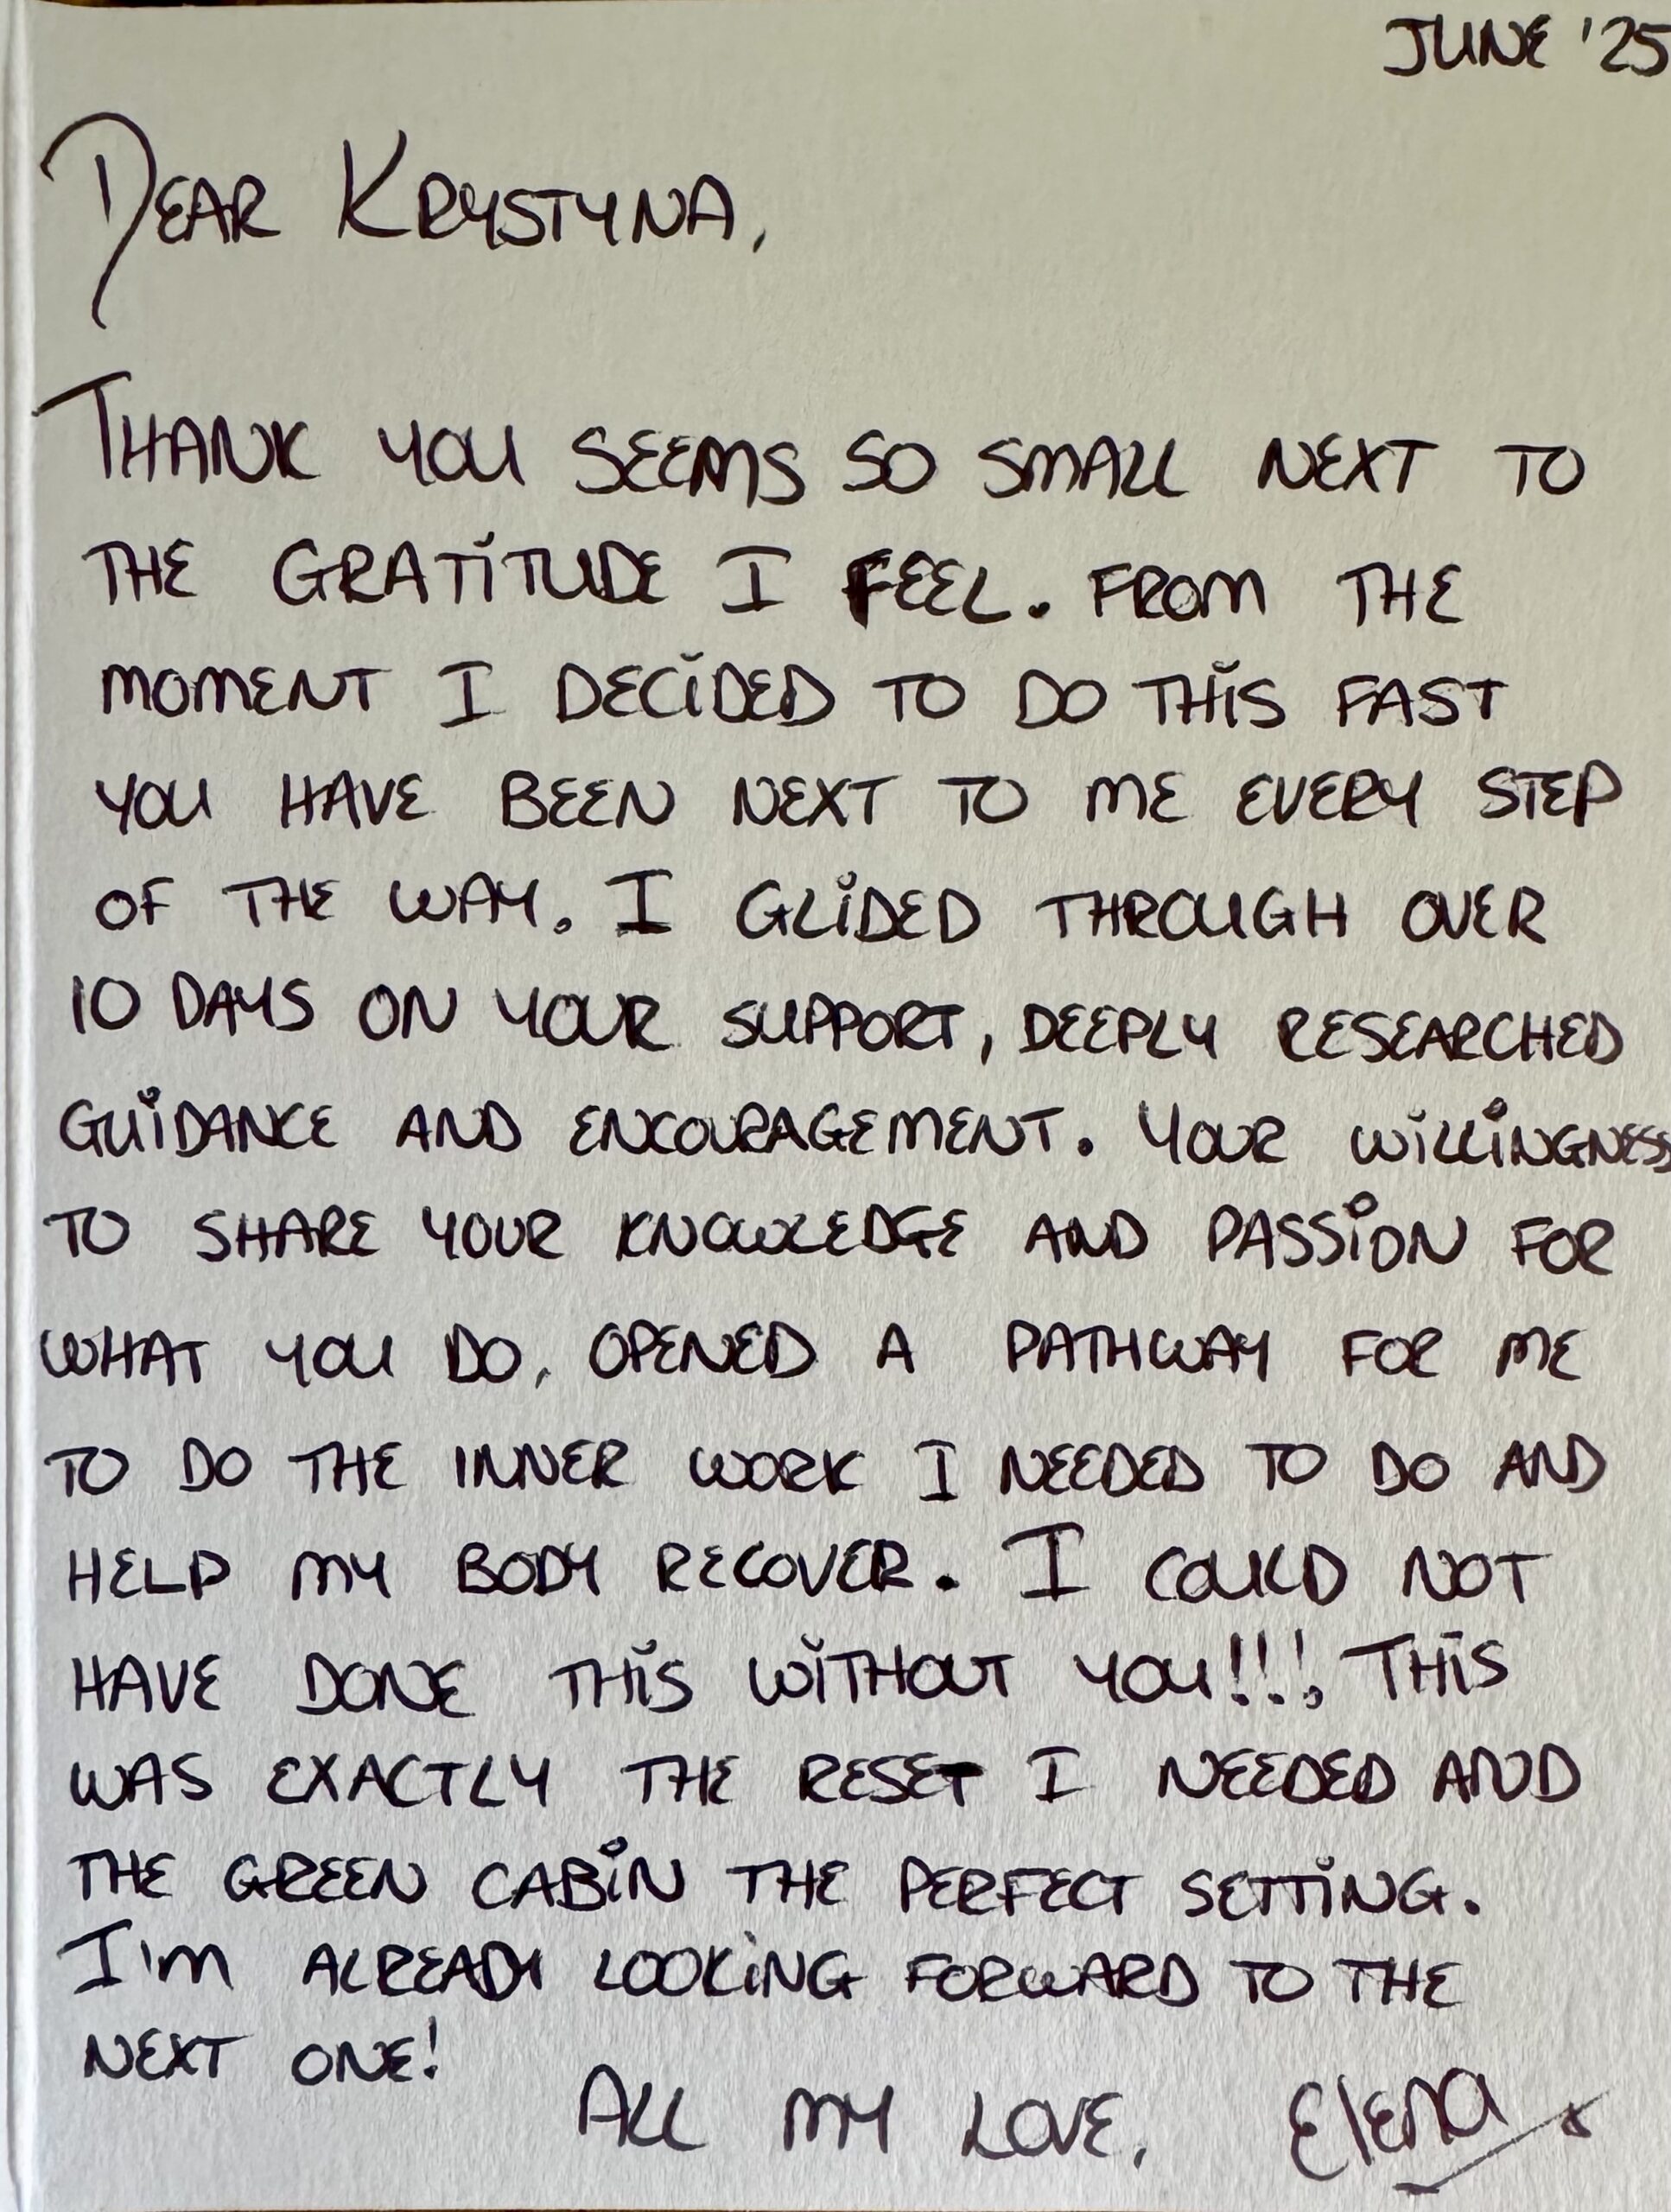 JUNE '25
DEAR KRYSTYNA,
THANK YOU SEEMS SO SMALL NEXT TO
THE GRATITUDE I FEEL. FROM THE
MOMENT I DECIDED TO DO THIS FAST
YOU HAVE BEEN NEXT TO ME EVERY STEP
OF THE WAY. I GLIDED THROUGH OVER
10 DAYS ON YOUR SUPPORT, DEEPLY RESEARCHED
GUIDANCE AND ENCOURAGEMENT. YOUR WILLINGNESS
TO SHARE YOUR KNOWLEDGE AND PASSION FOR
WHAT YOU DO, OPENED A PATHWAY FOR ME
TO DO THE INNER WORK I NEEDED TO DO AND
HELP MY BODY RECOVER. I COULD NOT
HAVE DONE THIS WITHOUT YOU!!! THIS
WAS EXACTLY THE RESET I NEEDED AND
THE GREEN CABIN THE PERFECT SETTING.
I'M ALREADY LOOKING FORWARD TO THE
NEXT ONE!
ALL MY LOVE, Elena x